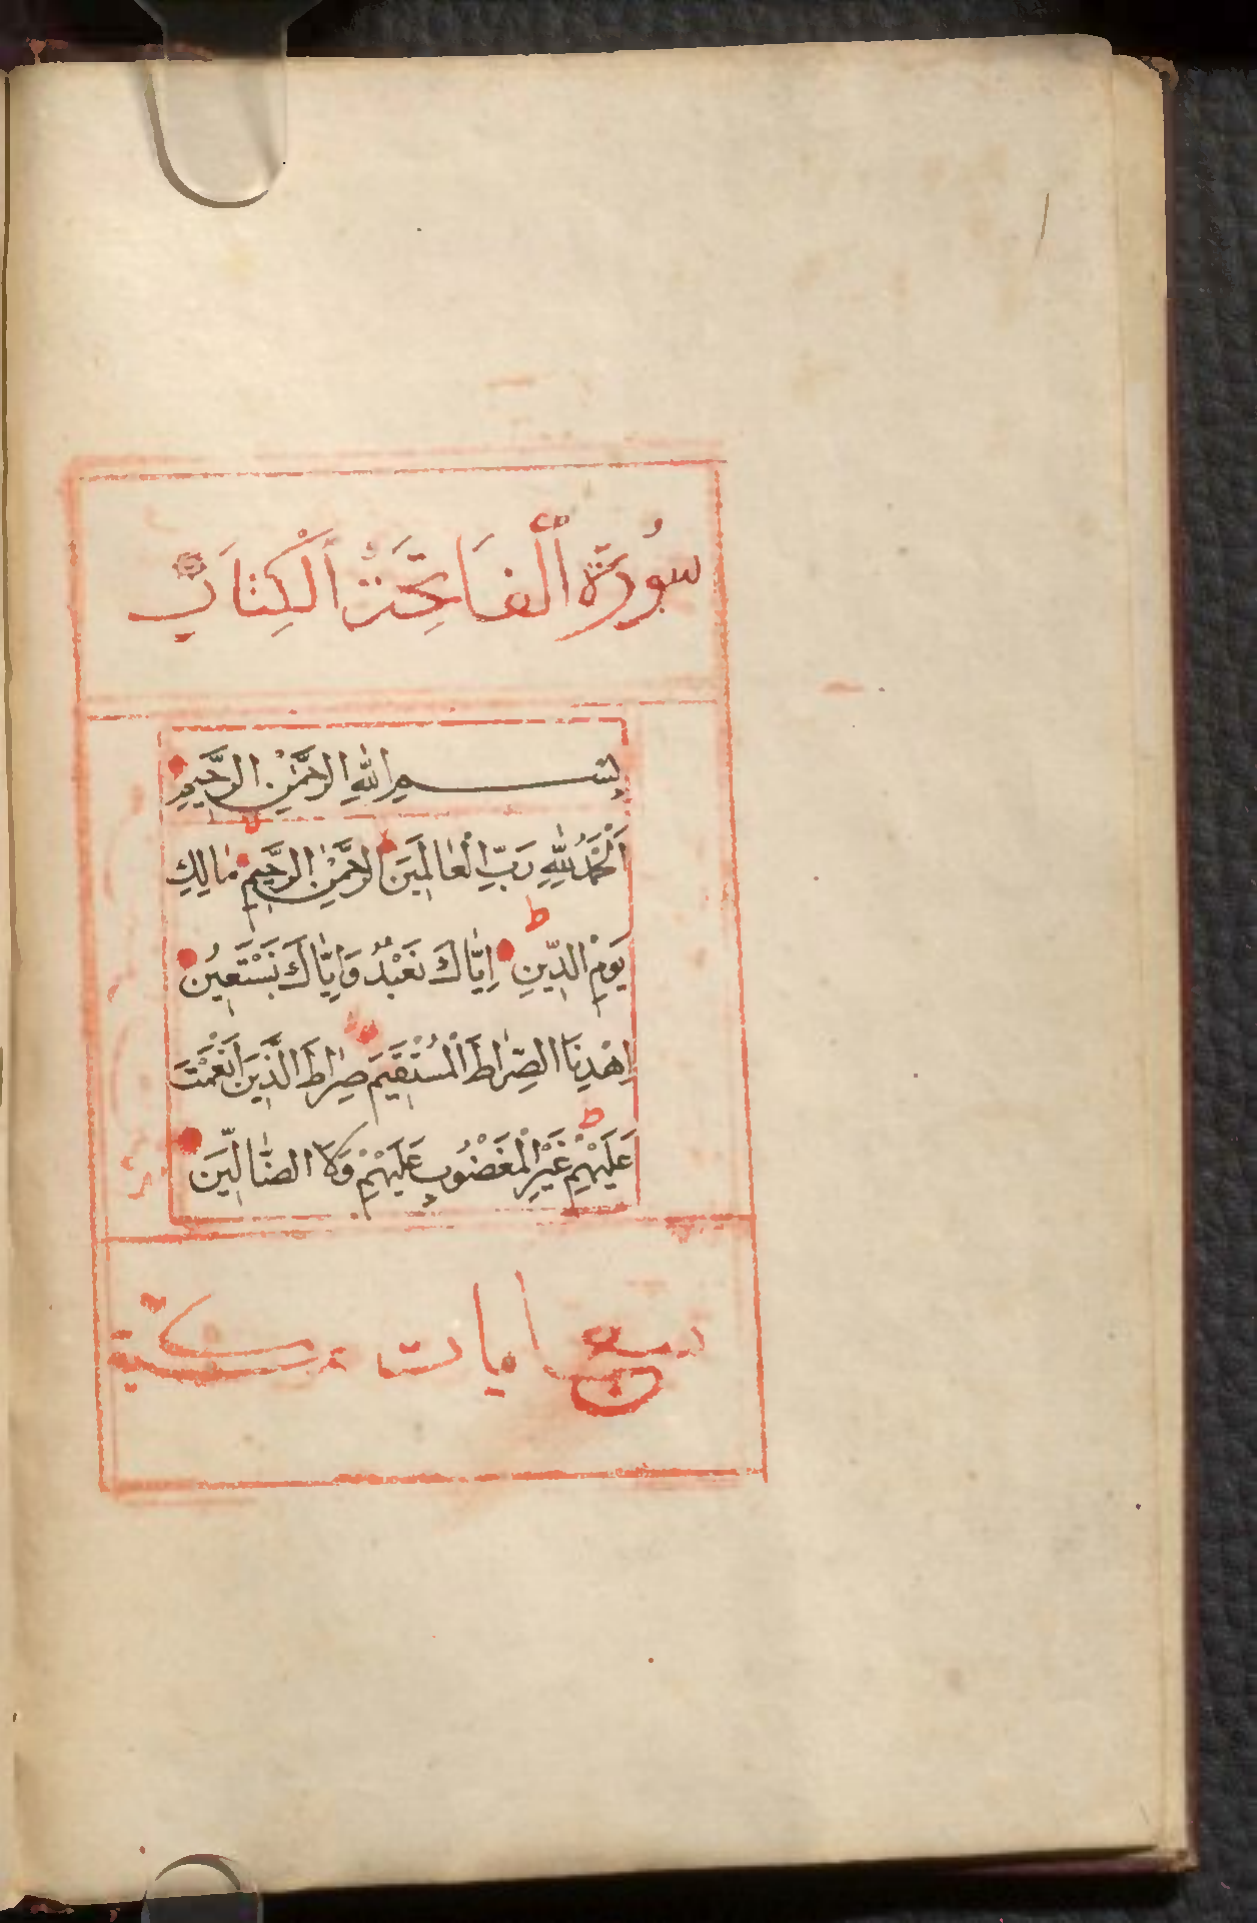 سُورَةُ ٱلْفَاتِحَةُ ٱلْكِتَابِ
بِسْمِ اللّٰهِ الرَّحْمٰنِ الرَّحِيمِ
اَلْحَمْدُ لِلّٰهِ رَبِّ الْعَالَمِينَ ط الرَّحْمٰنِ الرَّحِيمِ مَالِكِ
يَوْمِ الدِّينِ ط اِيَّاكَ نَعْبُدُ وَاِيَّاكَ نَسْتَعِينُ
اِهْدِنَا الصِّرَاطَ الْمُسْتَقِيمَ صِرَاطَ الَّذِينَ اَنْعَمْتَ
عَلَيْهِمْ ط غَيْرِ الْمَغْضُوبِ عَلَيْهِمْ وَلَا الضَّالِّينَ
سبع ايات مكية